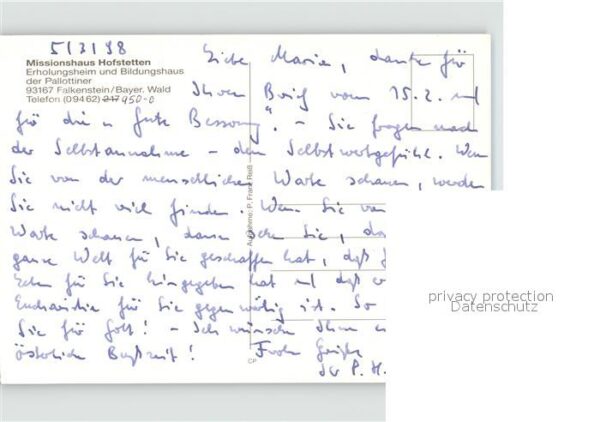 5/3/98
Missionshaus Hofstetten
Erholungsheim und Bildungshaus
der Pallottiner
93167 Falkenstein/Bayer. Wald
Telefon (09462) 247 950-0
Liebe Maria, danke für
Ihren Brief vom 15.2. und
für die „Gute Besserung". – Sie fragen nach
der Selbstannahme – dem Selbstwertgefühl. Wenn
Sie von der menschlichen Warte schauen, werden
Sie nicht viel finden. Wenn Sie von
Warte schauen, dann sehen Sie, da
ganze Welt für Sie geschaffen hat, daß
Leben für Sie hingegeben hat und daß er
Eucharistie für Sie gegenwärtig ist. So
Sie für Gott! – Ich wünsche Ihnen
österliche Bußzeit! Frohe Grüße
Ihr P. H.
Aufnahme: P. Franz Reiß
CP
privacy protection
Datenschutz